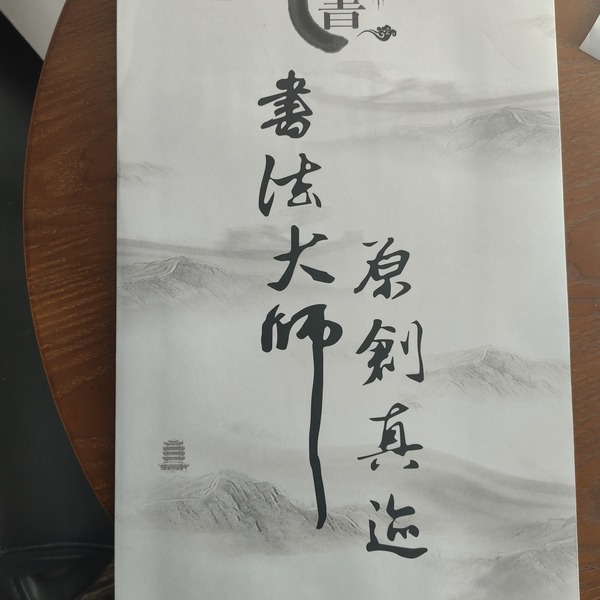 書
書法大师
原創真迹